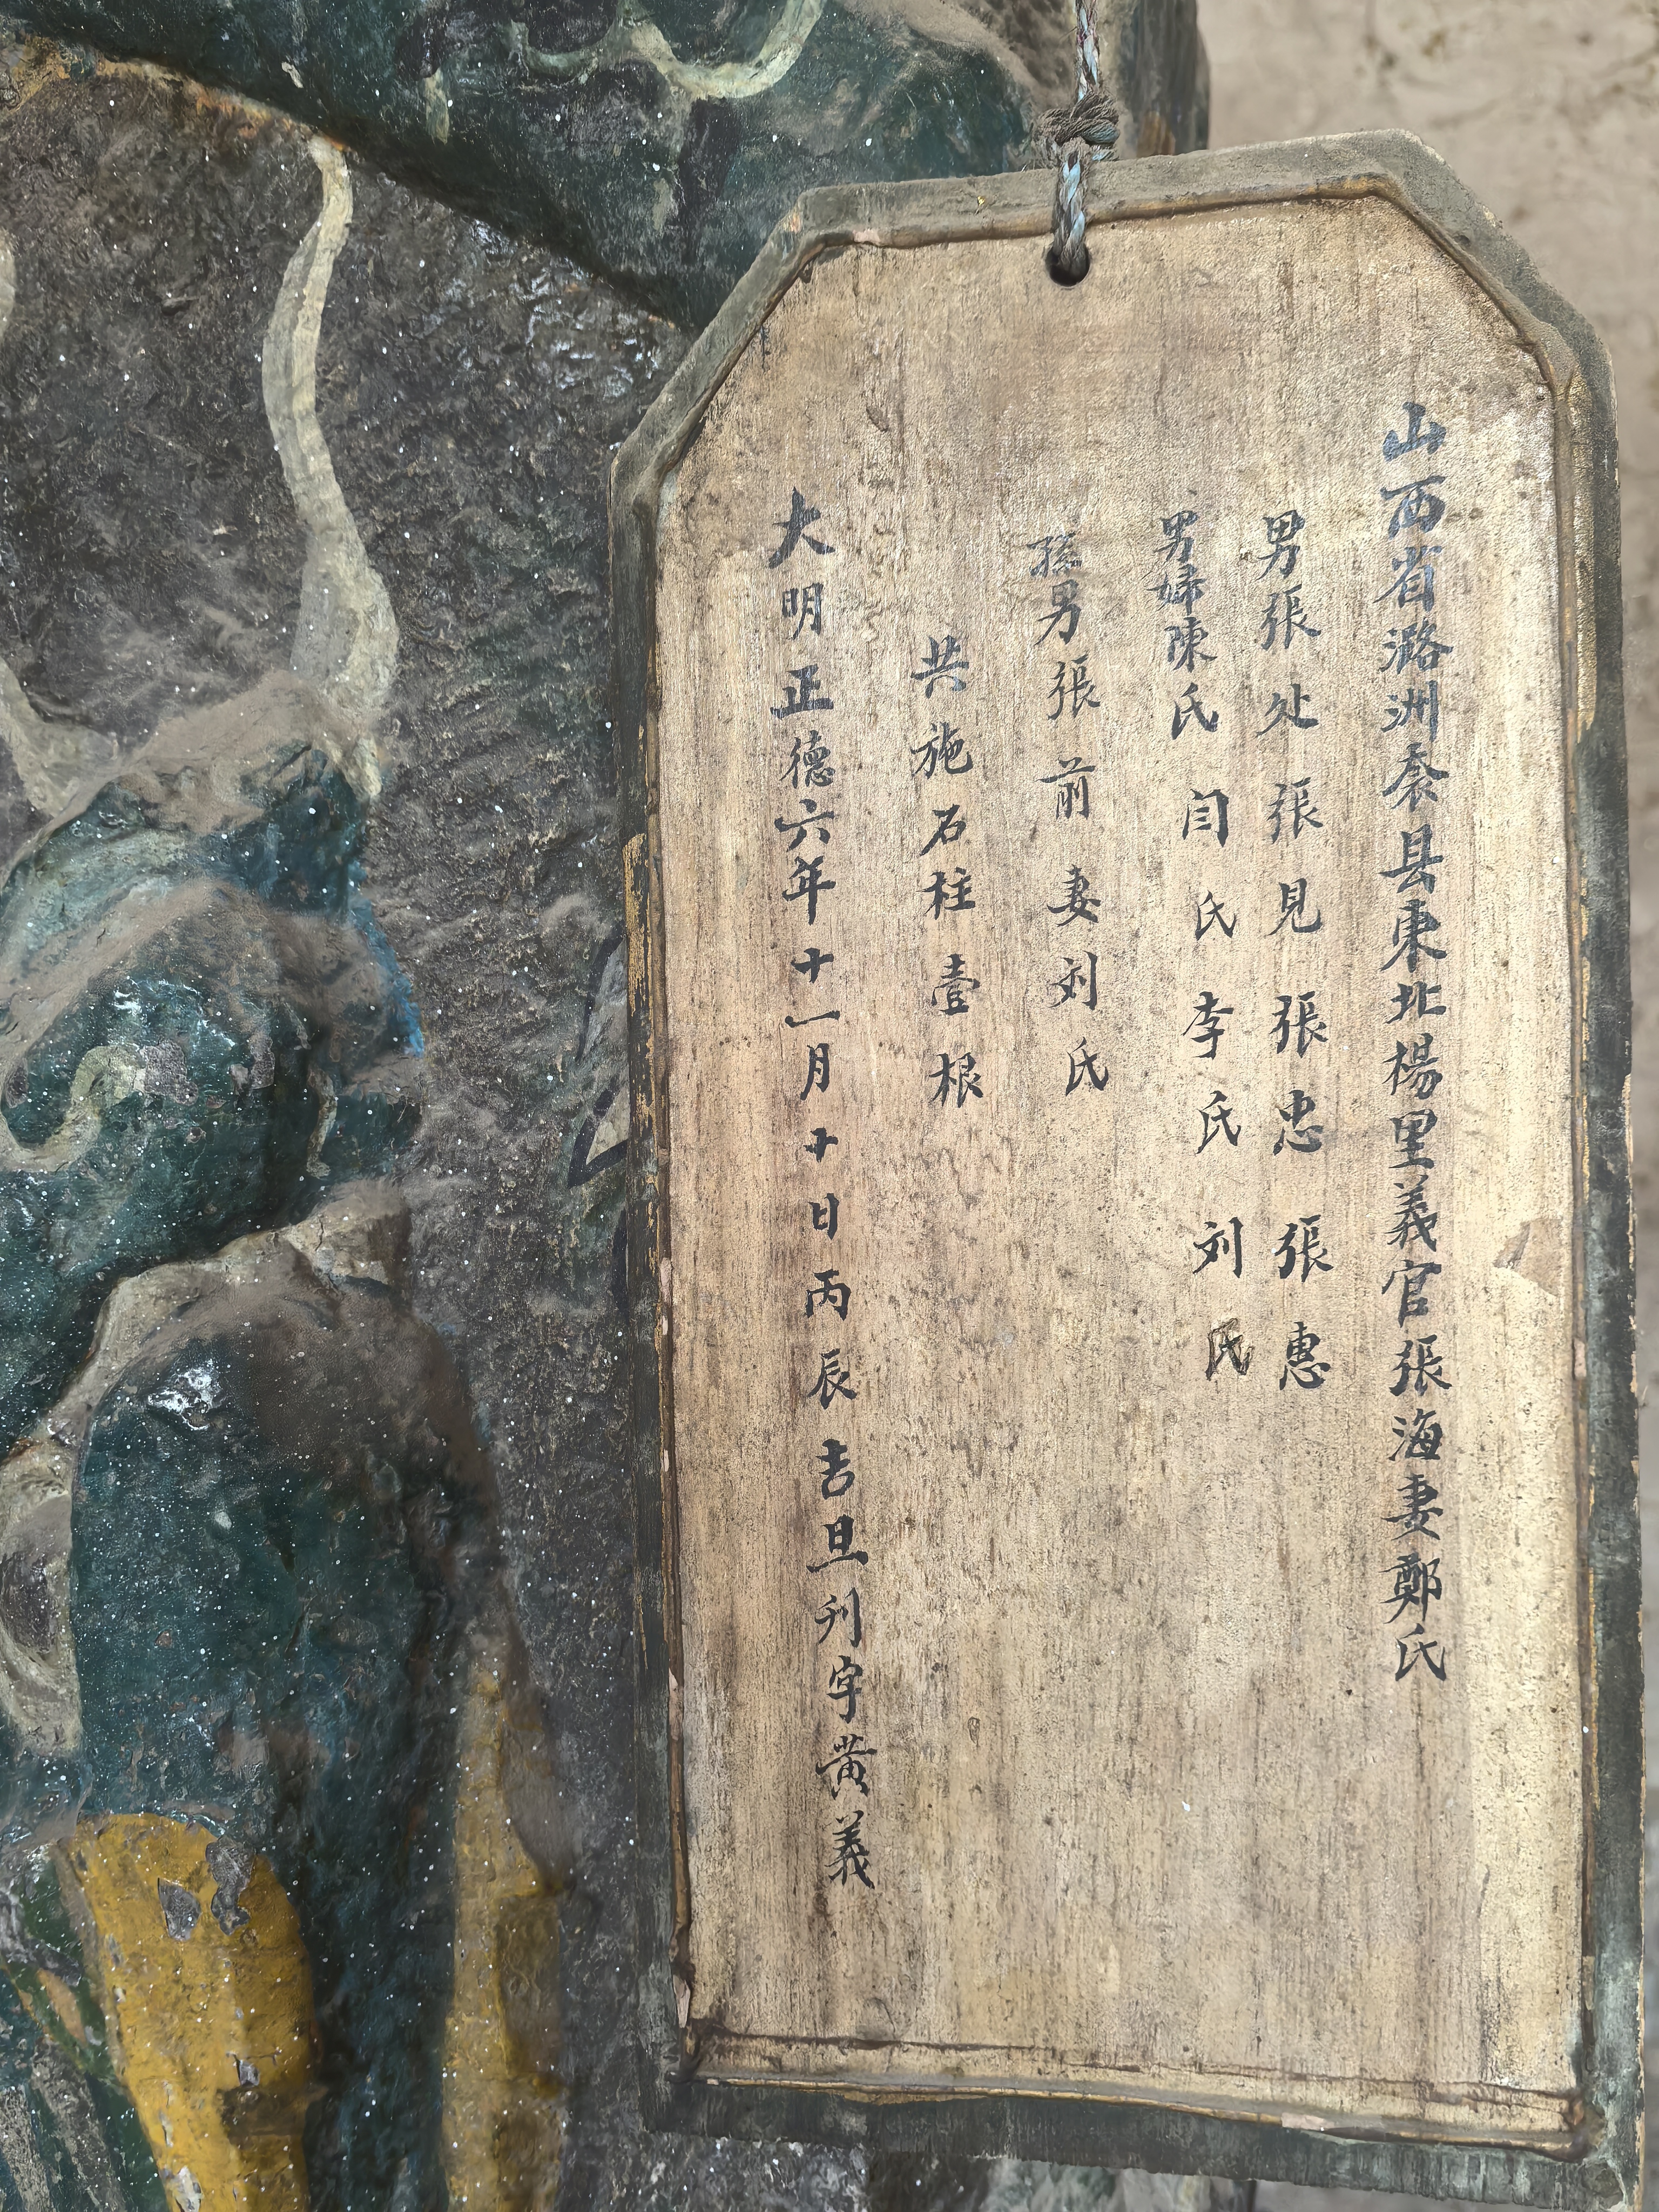 山西省潞洲袞县東北楊里義官張海妻鄭氏
男張处張見張忠張惠
男婦陳氏闫氏李氏刘氏
孫男張前妻刘氏
共施石柱壹根
大明正德六年十一月十日丙辰吉旦刊字黄義